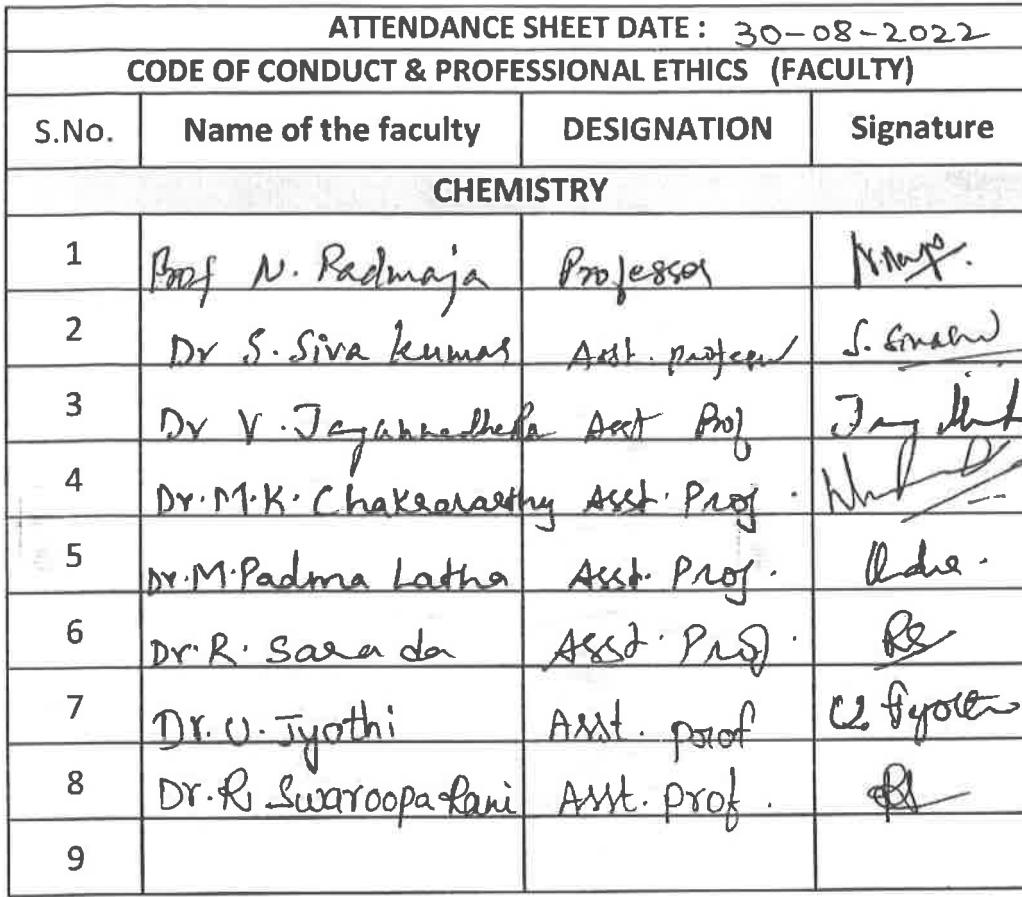 ATTENDANCE SHEET DATE : 30-08-2022
CODE OF CONDUCT & PROFESSIONAL ETHICS (FACULTY)
S.No. Name of the faculty DESIGNATION Signature
CHEMISTRY
1 Prof N. Padmaja Professor
2 Dr S. Siva kumar Asst. professor
3 Dr V. Asst Prof
4 Dr. M.K. Chakravarthy Asst. Prof.
5 Dr. M. Padma Latha Asst. Prof.
6 Dr. R. Sarada Asst. Prof.
7 Dr. U. Jyothi Asst. prof U. Jyothi
8 Dr. R. Swaroopa Rani Asst. prof.
9